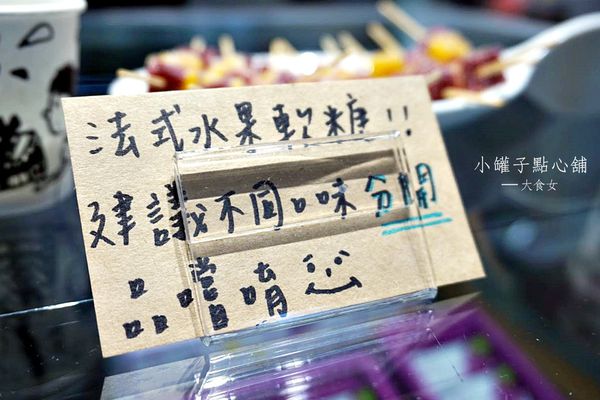 法式水果軟糖!!
建議不同口味分開
品嚐唷
小罐子點心舖
—大食女